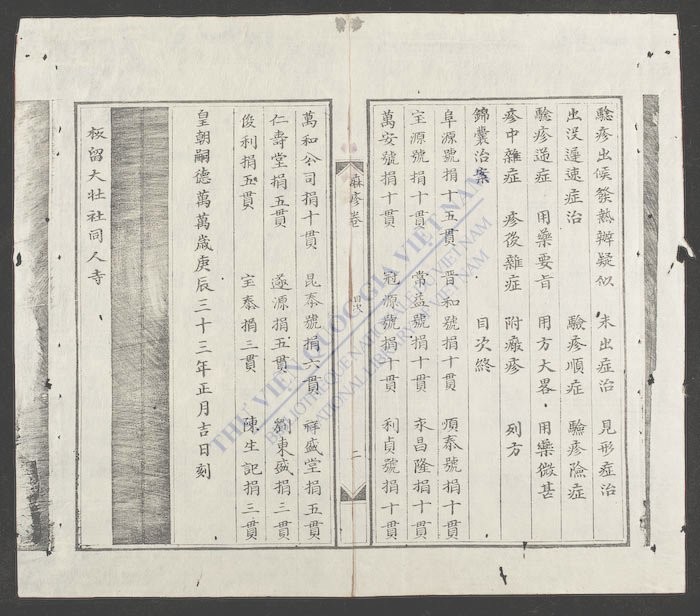 驗疹出候發熱辨疑似 未出症治 見形症治
出没遲速症治 驗疹順症 驗疹險症
驗疹逆症 用藥要旨 用方大畧 用藥微甚
疹中雜症 疹後雜症 附㿀疹 列方
錦囊治案 目次終
阜源號捐十五貫 晋和號捐十貫 順泰號捐十貫
宝源號捐十貫 常益號捐十貫 永昌隆捐十貫
萬安號捐十貫 冠源號捐十貫 利貞號捐十貫
麻疹卷 目次 二
萬和公司捐十貫 昆泰號捐六貫 祥盛堂捐五貫
仁壽堂捐五貫 遂源捐五貫 劉東盛捐三貫
俊利捐五貫 宝泰捐三貫 陳生記捐三貫
皇朝嗣德萬萬歲庚辰三十三年正月吉日刻
板留大壯社同人寺
THƯ VIỆN QUỐC GIA VIỆT NAM
BIBLIOTHEQUE NATIONALE DU VIET NAM
NATIONAL LIBRARY OF VIETNAM